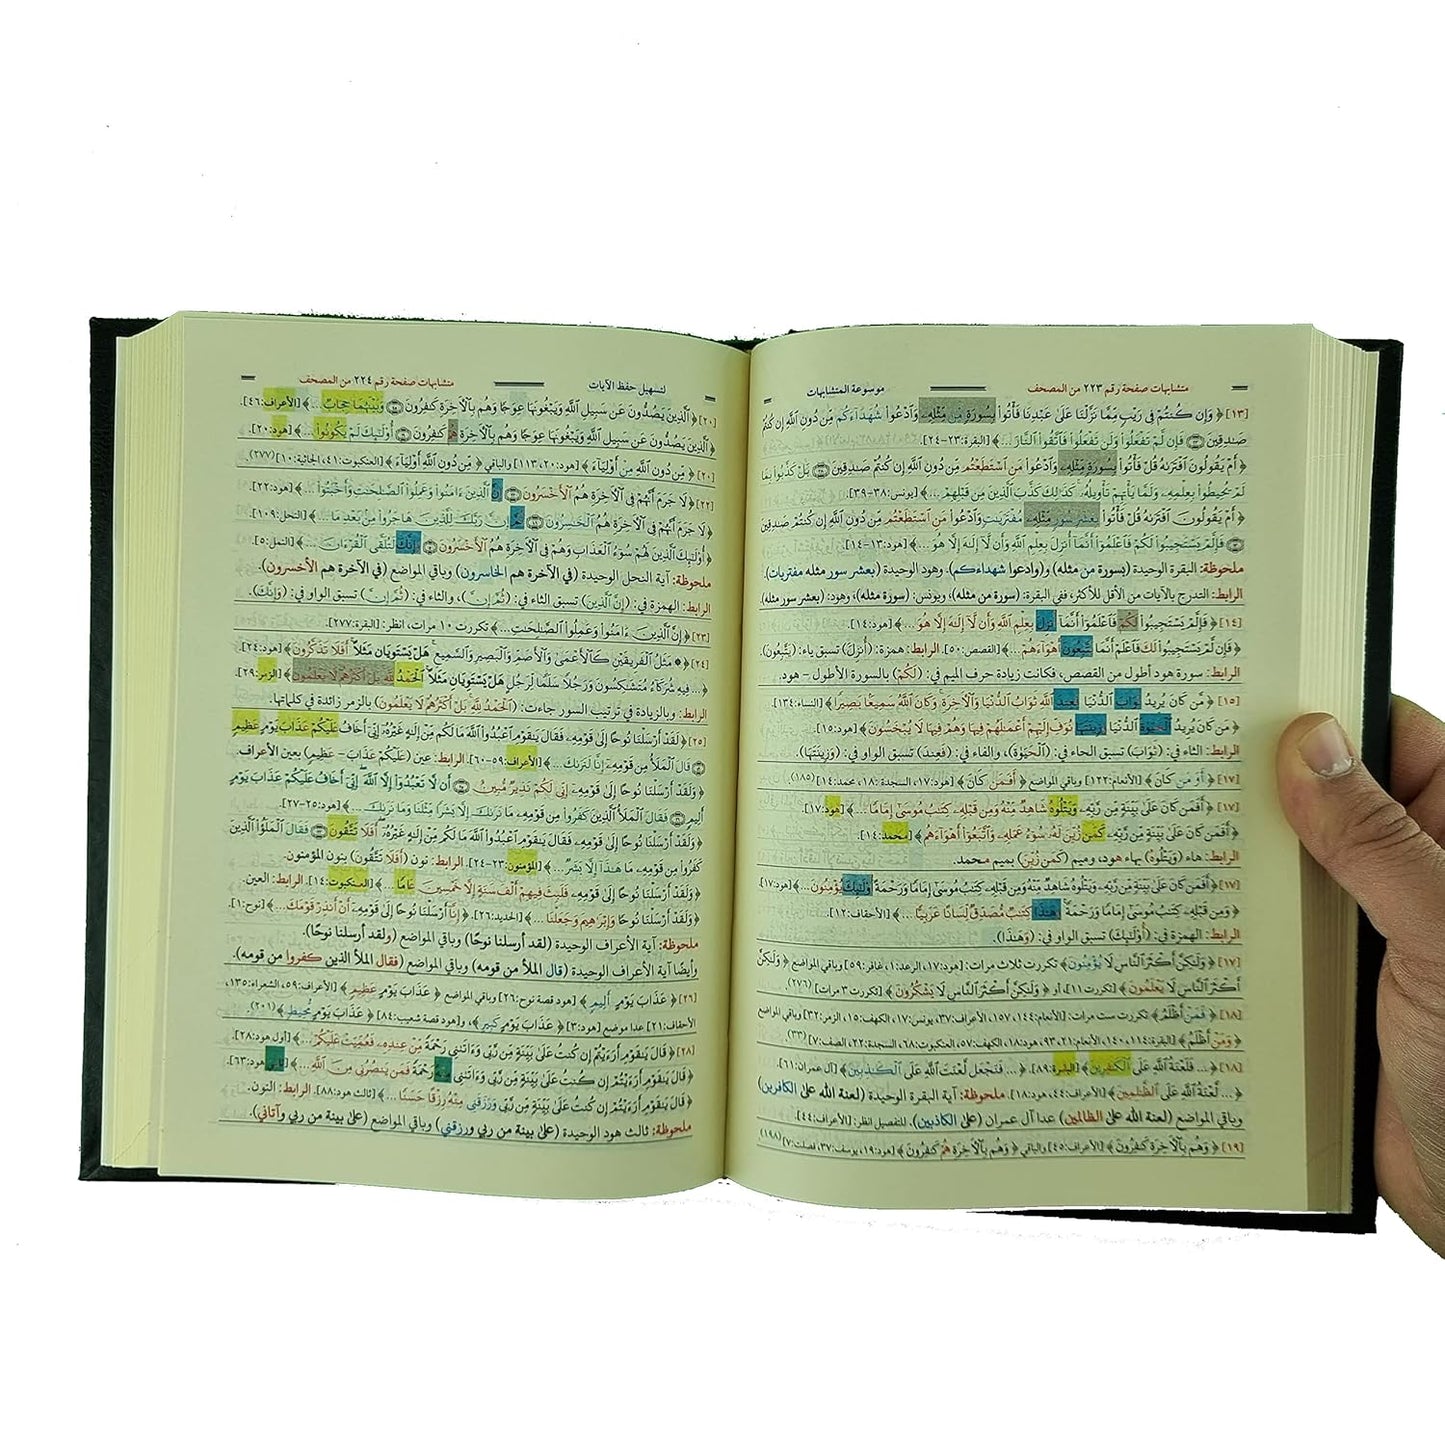 متشابهات صفحة رقم ٢٢٣ من المصحف
موسوعة المتشابهات
[١٣] ﴿وَإِن كُنتُمْ فِي رَيْبٍ مِّمَّا نَزَّلْنَا عَلَىٰ عَبْدِنَا فَأْتُوا۟ بِسُورَةٍ مِّن مِّثْلِهِۦ وَٱدْعُوا۟ شُهَدَآءَكُم مِّن دُونِ ٱللَّهِ إِن كُنتُمْ
صَـٰدِقِينَ ۝ فَإِن لَّمْ تَفْعَلُوا۟ وَلَن تَفْعَلُوا۟ فَٱتَّقُوا۟ ٱلنَّارَ...﴾ [البقرة: ٢٣-٢٤].
﴿أَمْ يَقُولُونَ ٱفْتَرَىٰهُ قُلْ فَأْتُوا۟ بِسُورَةٍ مِّثْلِهِۦ وَٱدْعُوا۟ مَنِ ٱسْتَطَعْتُم مِّن دُونِ ٱللَّهِ إِن كُنتُمْ صَـٰدِقِينَ ۝ بَلْ كَذَّبُوا۟ بِمَا
لَمْ يُحِيطُوا۟ بِعِلْمِهِۦ وَلَمَّا يَأْتِهِمْ تَأْوِيلُهُۥ كَذَٰلِكَ كَذَّبَ ٱلَّذِينَ مِن قَبْلِهِمْ...﴾ [يونس: ٣٨-٣٩].
﴿أَمْ يَقُولُونَ ٱفْتَرَىٰهُ قُلْ فَأْتُوا۟ بِعَشْرِ سُوَرٍ مِّثْلِهِۦ مُفْتَرَيَـٰتٍ وَٱدْعُوا۟ مَنِ ٱسْتَطَعْتُم مِّن دُونِ ٱللَّهِ إِن كُنتُمْ صَـٰدِقِينَ
۝ فَإِلَّمْ يَسْتَجِيبُوا۟ لَكُمْ فَٱعْلَمُوٓا۟ أَنَّمَآ أُنزِلَ بِعِلْمِ ٱللَّهِ وَأَن لَّآ إِلَـٰهَ إِلَّا هُوَ...﴾ [هود: ١٣-١٤].
ملحوظة: البقرة الوحيدة (بسورة من مثله) و(وادعوا شهداءكم)، وهود الوحيدة (بعشر سور مثله مفتريات).
الرابط: التدرج بالآيات من الأقل للأكثر، ففي البقرة: (سورة من مثله)، ويونس: (سورة مثله)، وهود: (بعشر سور مثله).
[١٤] ﴿فَإِلَّمْ يَسْتَجِيبُوا۟ لَكُمْ فَٱعْلَمُوٓا۟ أَنَّمَآ أُنزِلَ بِعِلْمِ ٱللَّهِ وَأَن لَّآ إِلَـٰهَ إِلَّا هُوَ...﴾ [هود: ١٤].
﴿فَإِن لَّمْ يَسْتَجِيبُوا۟ لَكَ فَٱعْلَمْ أَنَّمَا يَتَّبِعُونَ أَهْوَآءَهُمْ...﴾ [القصص: ٥٠]. الرابط: همزة: (أُنزِلَ) تسبق ياء: (يَتَّبِعُونَ).
الرابط: سورة هود أطول من القصص، فكانت زيادة حرف الميم في: (لَكُمْ) بالسورة الأطول - هود.
[١٥] ﴿مَّن كَانَ يُرِيدُ ثَوَابَ ٱلدُّنْيَا فَعِندَ ٱللَّهِ ثَوَابُ ٱلدُّنْيَا وَٱلْـَٔاخِرَةِ وَكَانَ ٱللَّهُ سَمِيعًۢا بَصِيرًا﴾ [النساء: ١٣٤].
﴿مَن كَانَ يُرِيدُ ٱلْحَيَوٰةَ ٱلدُّنْيَا وَزِينَتَهَا نُوَفِّ إِلَيْهِمْ أَعْمَـٰلَهُمْ فِيهَا وَهُمْ فِيهَا لَا يُبْخَسُونَ﴾ [هود: ١٥].
الرابط: الثاء في: (ثَوَابَ) تسبق الحاء في: (الْحَيَوٰةَ)، والفاء في: (فعند) تسبق الواو في: (وَزِينَتَهَا).
[١٧] ﴿أَوَ مَن كَانَ﴾ [الأنعام: ١٢٢] وباقي المواضع ﴿أَفَمَن كَانَ﴾ [هود: ١٧، السجدة: ١٨، محمد: ١٤] (١٨٥)
[١٧] ﴿أَفَمَن كَانَ عَلَىٰ بَيِّنَةٍ مِّن رَّبِّهِۦ وَيَتْلُوهُ شَاهِدٌ مِّنْهُ وَمِن قَبْلِهِۦ كِتَـٰبُ مُوسَىٰٓ إِمَامًا...﴾ [هود: ١٧].
﴿أَفَمَن كَانَ عَلَىٰ بَيِّنَةٍ مِّن رَّبِّهِۦ كَمَن زُيِّنَ لَهُۥ سُوٓءُ عَمَلِهِۦ وَٱتَّبَعُوٓا۟ أَهْوَآءَهُم﴾ [محمد: ١٤].
الرابط: هاء (وَيَتْلُوهُ) بهاء هود، وميم (كَمَن زُيِّنَ) بميم محمد.
[١٧] ﴿أَفَمَن كَانَ عَلَىٰ بَيِّنَةٍ مِّن رَّبِّهِۦ وَيَتْلُوهُ شَاهِدٌ مِّنْهُ وَمِن قَبْلِهِۦ كِتَـٰبُ مُوسَىٰٓ إِمَامًا وَرَحْمَةً أُو۟لَـٰٓئِكَ يُؤْمِنُونَ...﴾ [هود: ١٧].
﴿وَمِن قَبْلِهِۦ كِتَـٰبُ مُوسَىٰٓ إِمَامًا وَرَحْمَةً وَهَـٰذَا كِتَـٰبٌ مُّصَدِّقٌ لِّسَانًا عَرَبِيًّا...﴾ [الأحقاف: ١٢].
الرابط: الهمزة في: (أُوْلَـٰئِكَ) تسبق الواو في: (وَهَـٰذَا).
[١٧] ﴿وَلَـٰكِنَّ أَكْثَرَ ٱلنَّاسِ لَا يُؤْمِنُونَ﴾ تكررت ثلاث مرات: [هود: ١٧، الرعد: ١، غافر: ٥٩] وباقي المواضع ﴿وَلَـٰكِنَّ
أَكْثَرَ ٱلنَّاسِ لَا يَعْلَمُونَ﴾ [تكررت ١١]، أو ﴿وَلَـٰكِنَّ أَكْثَرَ ٱلنَّاسِ لَا يَشْكُرُونَ﴾ [تكررت ٣ مرات] (٢٧٦)
[١٨] ﴿فَمَنْ أَظْلَمُ﴾ تكررت ست مرات: [الأنعام: ١٤٤، ١٥٧، الأعراف: ٣٧، يونس: ١٧، الكهف: ١٥، الزمر: ٣٢] وباقي المواضع
﴿وَمَنْ أَظْلَمُ﴾ [البقرة: ١١٤، ١٤٠، الأنعام: ٢١، ٩٣، هود: ١٨، الكهف: ٥٧، العنكبوت: ٦٨، السجدة: ٢٢، الصف: ٧] (٣٣)
[١٨] ﴿... فَلَعْنَةُ ٱللَّهِ عَلَى ٱلْكَـٰفِرِينَ﴾ [البقرة: ٨٩]. ﴿... فَنَجْعَل لَّعْنَتَ ٱللَّهِ عَلَى ٱلْكَـٰذِبِينَ﴾ [آل عمران: ٦١].
﴿... لَّعْنَةُ ٱللَّهِ عَلَى ٱلظَّـٰلِمِينَ﴾ [الأعراف: ٤٤، هود: ١٨]. ملحوظة: آية البقرة الوحيدة (لعنة الله على الكافرين)
وباقي المواضع (لعنة الله على الظالمين) عدا آل عمران (على الكاذبين). [للتفصيل انظر: الأعراف: ٤٤].
[١٩] ﴿وَهُم بِٱلْـَٔاخِرَةِ كَـٰفِرُونَ﴾ [الأعراف: ٤٥] والباقي ﴿وَهُم بِٱلْـَٔاخِرَةِ هُمْ كَـٰفِرُونَ﴾ [هود: ١٩، يوسف: ٣٧، فصلت: ٧] (١٩٨)
لتسهيل حفظ الآيات
متشابهات صفحة رقم ٢٢٤ من المصحف
[٢٠] ﴿ٱلَّذِينَ يَصُدُّونَ عَن سَبِيلِ ٱللَّهِ وَيَبْغُونَهَا عِوَجًا وَهُم بِٱلْـَٔاخِرَةِ كَـٰفِرُونَ ۝ وَبَيْنَهُمَا حِجَابٌ...﴾ [الأعراف: ٤٦].
﴿ٱلَّذِينَ يَصُدُّونَ عَن سَبِيلِ ٱللَّهِ وَيَبْغُونَهَا عِوَجًا وَهُم بِٱلْـَٔاخِرَةِ هُمْ كَـٰفِرُونَ ۝ أُو۟لَـٰٓئِكَ لَمْ يَكُونُوا۟...﴾ [هود: ٢٠].
[٢٠] ﴿مِّن دُونِ ٱللَّهِ مِنْ أَوْلِيَآءَ﴾ [هود: ٢٠، ١١٣] والباقي ﴿مِن دُونِ ٱللَّهِ أَوْلِيَآءَ﴾ [العنكبوت: ٤١، الجاثية: ١٠] (٢٧٧)
[٢٢] ﴿لَا جَرَمَ أَنَّهُمْ فِى ٱلْـَٔاخِرَةِ هُمُ ٱلْأَخْسَرُونَ ۝ إِنَّ ٱلَّذِينَ ءَامَنُوا۟ وَعَمِلُوا۟ ٱلصَّـٰلِحَـٰتِ وَأَخْبَتُوٓا۟...﴾ [هود: ٢٢].
﴿لَا جَرَمَ أَنَّهُمْ فِى ٱلْـَٔاخِرَةِ هُمُ ٱلْخَـٰسِرُونَ ۝ ثُمَّ إِنَّ رَبَّكَ لِلَّذِينَ هَاجَرُوا۟ مِنۢ بَعْدِ مَا...﴾ [النحل: ١٠٩].
﴿أُو۟لَـٰٓئِكَ ٱلَّذِينَ لَهُمْ سُوٓءُ ٱلْعَذَابِ وَهُمْ فِى ٱلْـَٔاخِرَةِ هُمُ ٱلْأَخْسَرُونَ ۝ وَإِنَّكَ لَتُلَقَّى ٱلْقُرْءَانَ...﴾ [النمل: ٥].
ملحوظة: آية النحل الوحيدة (في الآخرة هم الخاسرون) وباقي المواضع (في الآخرة هم الأخسرون).
الرابط: الهمزة في: (إِنَّ الَّذِينَ) تسبق الثاء في: (ثُمَّ إِنَّ)، والثاء في: (ثُمَّ إِنَّ) تسبق الواو في: (وَإِنَّكَ).
[٢٣] ﴿إِنَّ ٱلَّذِينَ ءَامَنُوا۟ وَعَمِلُوا۟ ٱلصَّـٰلِحَـٰتِ...﴾ تكررت ١٠ مرات، انظر: [البقرة: ٢٧٧].
[٢٤] ﴿۞ مَثَلُ ٱلْفَرِيقَيْنِ كَٱلْأَعْمَىٰ وَٱلْأَصَمِّ وَٱلْبَصِيرِ وَٱلسَّمِيعِ هَلْ يَسْتَوِيَانِ مَثَلًا أَفَلَا تَذَكَّرُونَ﴾ [هود: ٢٤].
﴿... فِيهِ شُرَكَآءُ مُتَشَـٰكِسُونَ وَرَجُلًا سَلَمًا لِّرَجُلٍ هَلْ يَسْتَوِيَانِ مَثَلًا ٱلْحَمْدُ لِلَّهِ بَلْ أَكْثَرُهُمْ لَا يَعْلَمُونَ﴾ [الزمر: ٢٩].
الرابط: وبالزيادة في ترتيب السور جاءت: (الْحَمْدُ لِلَّهِ بَلْ أَكْثَرُهُمْ لَا يَعْلَمُونَ) بالزمر زائدة في كلماتها.
[٢٥] ﴿لَقَدْ أَرْسَلْنَا نُوحًا إِلَىٰ قَوْمِهِۦ فَقَالَ يَـٰقَوْمِ ٱعْبُدُوا۟ ٱللَّهَ مَا لَكُم مِّنْ إِلَـٰهٍ غَيْرُهُۥٓ إِنِّىٓ أَخَافُ عَلَيْكُمْ عَذَابَ يَوْمٍ عَظِيمٍ
۝ قَالَ ٱلْمَلَأُ مِن قَوْمِهِۦٓ إِنَّا لَنَرَىٰكَ...﴾ [الأعراف: ٥٩-٦٠]. الرابط: عين (عَلَيْكُمْ عَذَابَ - عَظِيمٍ) بعين الأعراف.
﴿وَلَقَدْ أَرْسَلْنَا نُوحًا إِلَىٰ قَوْمِهِۦٓ إِنِّى لَكُمْ نَذِيرٌ مُّبِينٌ ۝ أَن لَّا تَعْبُدُوٓا۟ إِلَّا ٱللَّهَ إِنِّىٓ أَخَافُ عَلَيْكُمْ عَذَابَ يَوْمٍ
أَلِيمٍ ۝ فَقَالَ ٱلْمَلَأُ ٱلَّذِينَ كَفَرُوا۟ مِن قَوْمِهِۦ مَا نَرَىٰكَ إِلَّا بَشَرًا مِّثْلَنَا وَمَا نَرَىٰكَ...﴾ [هود: ٢٥-٢٧].
﴿وَلَقَدْ أَرْسَلْنَا نُوحًا إِلَىٰ قَوْمِهِۦ فَقَالَ يَـٰقَوْمِ ٱعْبُدُوا۟ ٱللَّهَ مَا لَكُم مِّنْ إِلَـٰهٍ غَيْرُهُۥٓ أَفَلَا تَتَّقُونَ ۝ فَقَالَ ٱلْمَلَؤُا۟ ٱلَّذِينَ
كَفَرُوا۟ مِن قَوْمِهِۦ مَا هَـٰذَآ إِلَّا بَشَرٌ...﴾ [المؤمنون: ٢٣-٢٤]. الرابط: نون (أَفَلَا تَتَّقُونَ) بنون المؤمنون.
﴿وَلَقَدْ أَرْسَلْنَا نُوحًا إِلَىٰ قَوْمِهِۦ فَلَبِثَ فِيهِمْ أَلْفَ سَنَةٍ إِلَّا خَمْسِينَ عَامًا...﴾ [العنكبوت: ١٤]. الرابط: العين.
﴿وَلَقَدْ أَرْسَلْنَا نُوحًا وَإِبْرَٰهِيمَ وَجَعَلْنَا...﴾ [الحديد: ٢٦]. ﴿إِنَّآ أَرْسَلْنَا نُوحًا إِلَىٰ قَوْمِهِۦٓ أَنْ أَنذِرْ قَوْمَكَ...﴾ [نوح: ١].
ملحوظة: آية الأعراف الوحيدة (لقد أرسلنا نوحًا) وباقي المواضع (ولقد أرسلنا نوحًا).
وأيضًا آية الأعراف الوحيدة (قال الملأ من قومه) وباقي المواضع (فقال الملأ الذين كفروا من قومه).
[٢٦] ﴿عَذَابَ يَوْمٍ أَلِيمٍ﴾ [هود قصة نوح: ٢٦] وباقي المواضع ﴿عَذَابَ يَوْمٍ عَظِيمٍ﴾ [الأعراف: ٥٩، الشعراء: ١٣٥،
الأحقاف: ٢١] عدا موضع [هود: ٣] ﴿عَذَابَ يَوْمٍ كَبِيرٍ﴾، و[هود قصة شعيب: ٨٤] ﴿عَذَابَ يَوْمٍ مُّحِيطٍ﴾. (٢٠١)
[٢٨] ﴿قَالَ يَـٰقَوْمِ أَرَءَيْتُمْ إِن كُنتُ عَلَىٰ بَيِّنَةٍ مِّن رَّبِّى وَءَاتَىٰنِى رَحْمَةً مِّنْ عِندِهِۦ فَعُمِّيَتْ عَلَيْكُمْ...﴾ [أول هود: ٢٨].
﴿قَالَ يَـٰقَوْمِ أَرَءَيْتُمْ إِن كُنتُ عَلَىٰ بَيِّنَةٍ مِّن رَّبِّى وَءَاتَىٰنِى مِنْهُ رَحْمَةً فَمَن يَنصُرُنِى مِنَ ٱللَّهِ...﴾ [ثاني هود: ٦٣].
﴿قَالَ يَـٰقَوْمِ أَرَءَيْتُمْ إِن كُنتُ عَلَىٰ بَيِّنَةٍ مِّن رَّبِّى وَرَزَقَنِى مِنْهُ رِزْقًا حَسَنًا...﴾ [ثالث هود: ٨٨]. الرابط: النون.
ملحوظة: ثالث هود الوحيدة (على بينة من ربي ورزقني) وباقي المواضع (على بينة من ربي وآتاني).